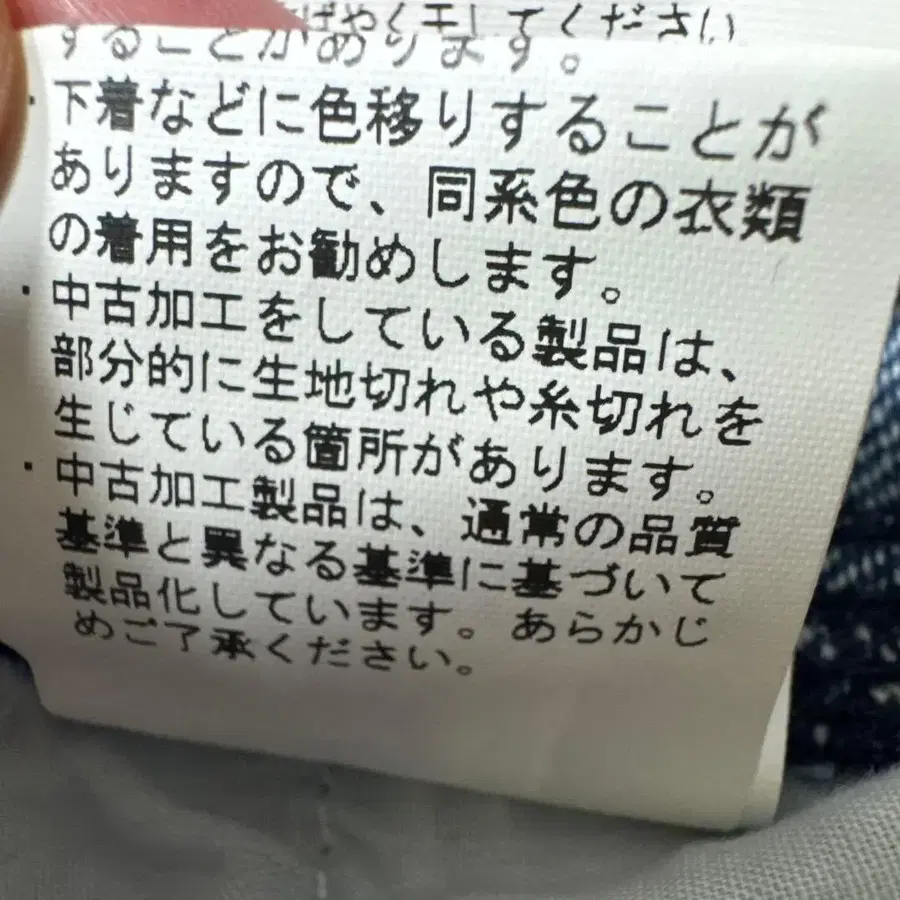 ばやく干してください
することがあります。
・下着などに色移りすることが
ありますので、同系色の衣類
の着用をお勧めします。
・中古加工をしている製品は、
部分的に生地切れや糸切れを
生じている箇所があります。
・中古加工製品は、通常の品質
基準と異なる基準に基づいて
製品化しています。あらかじ
めご了承ください。